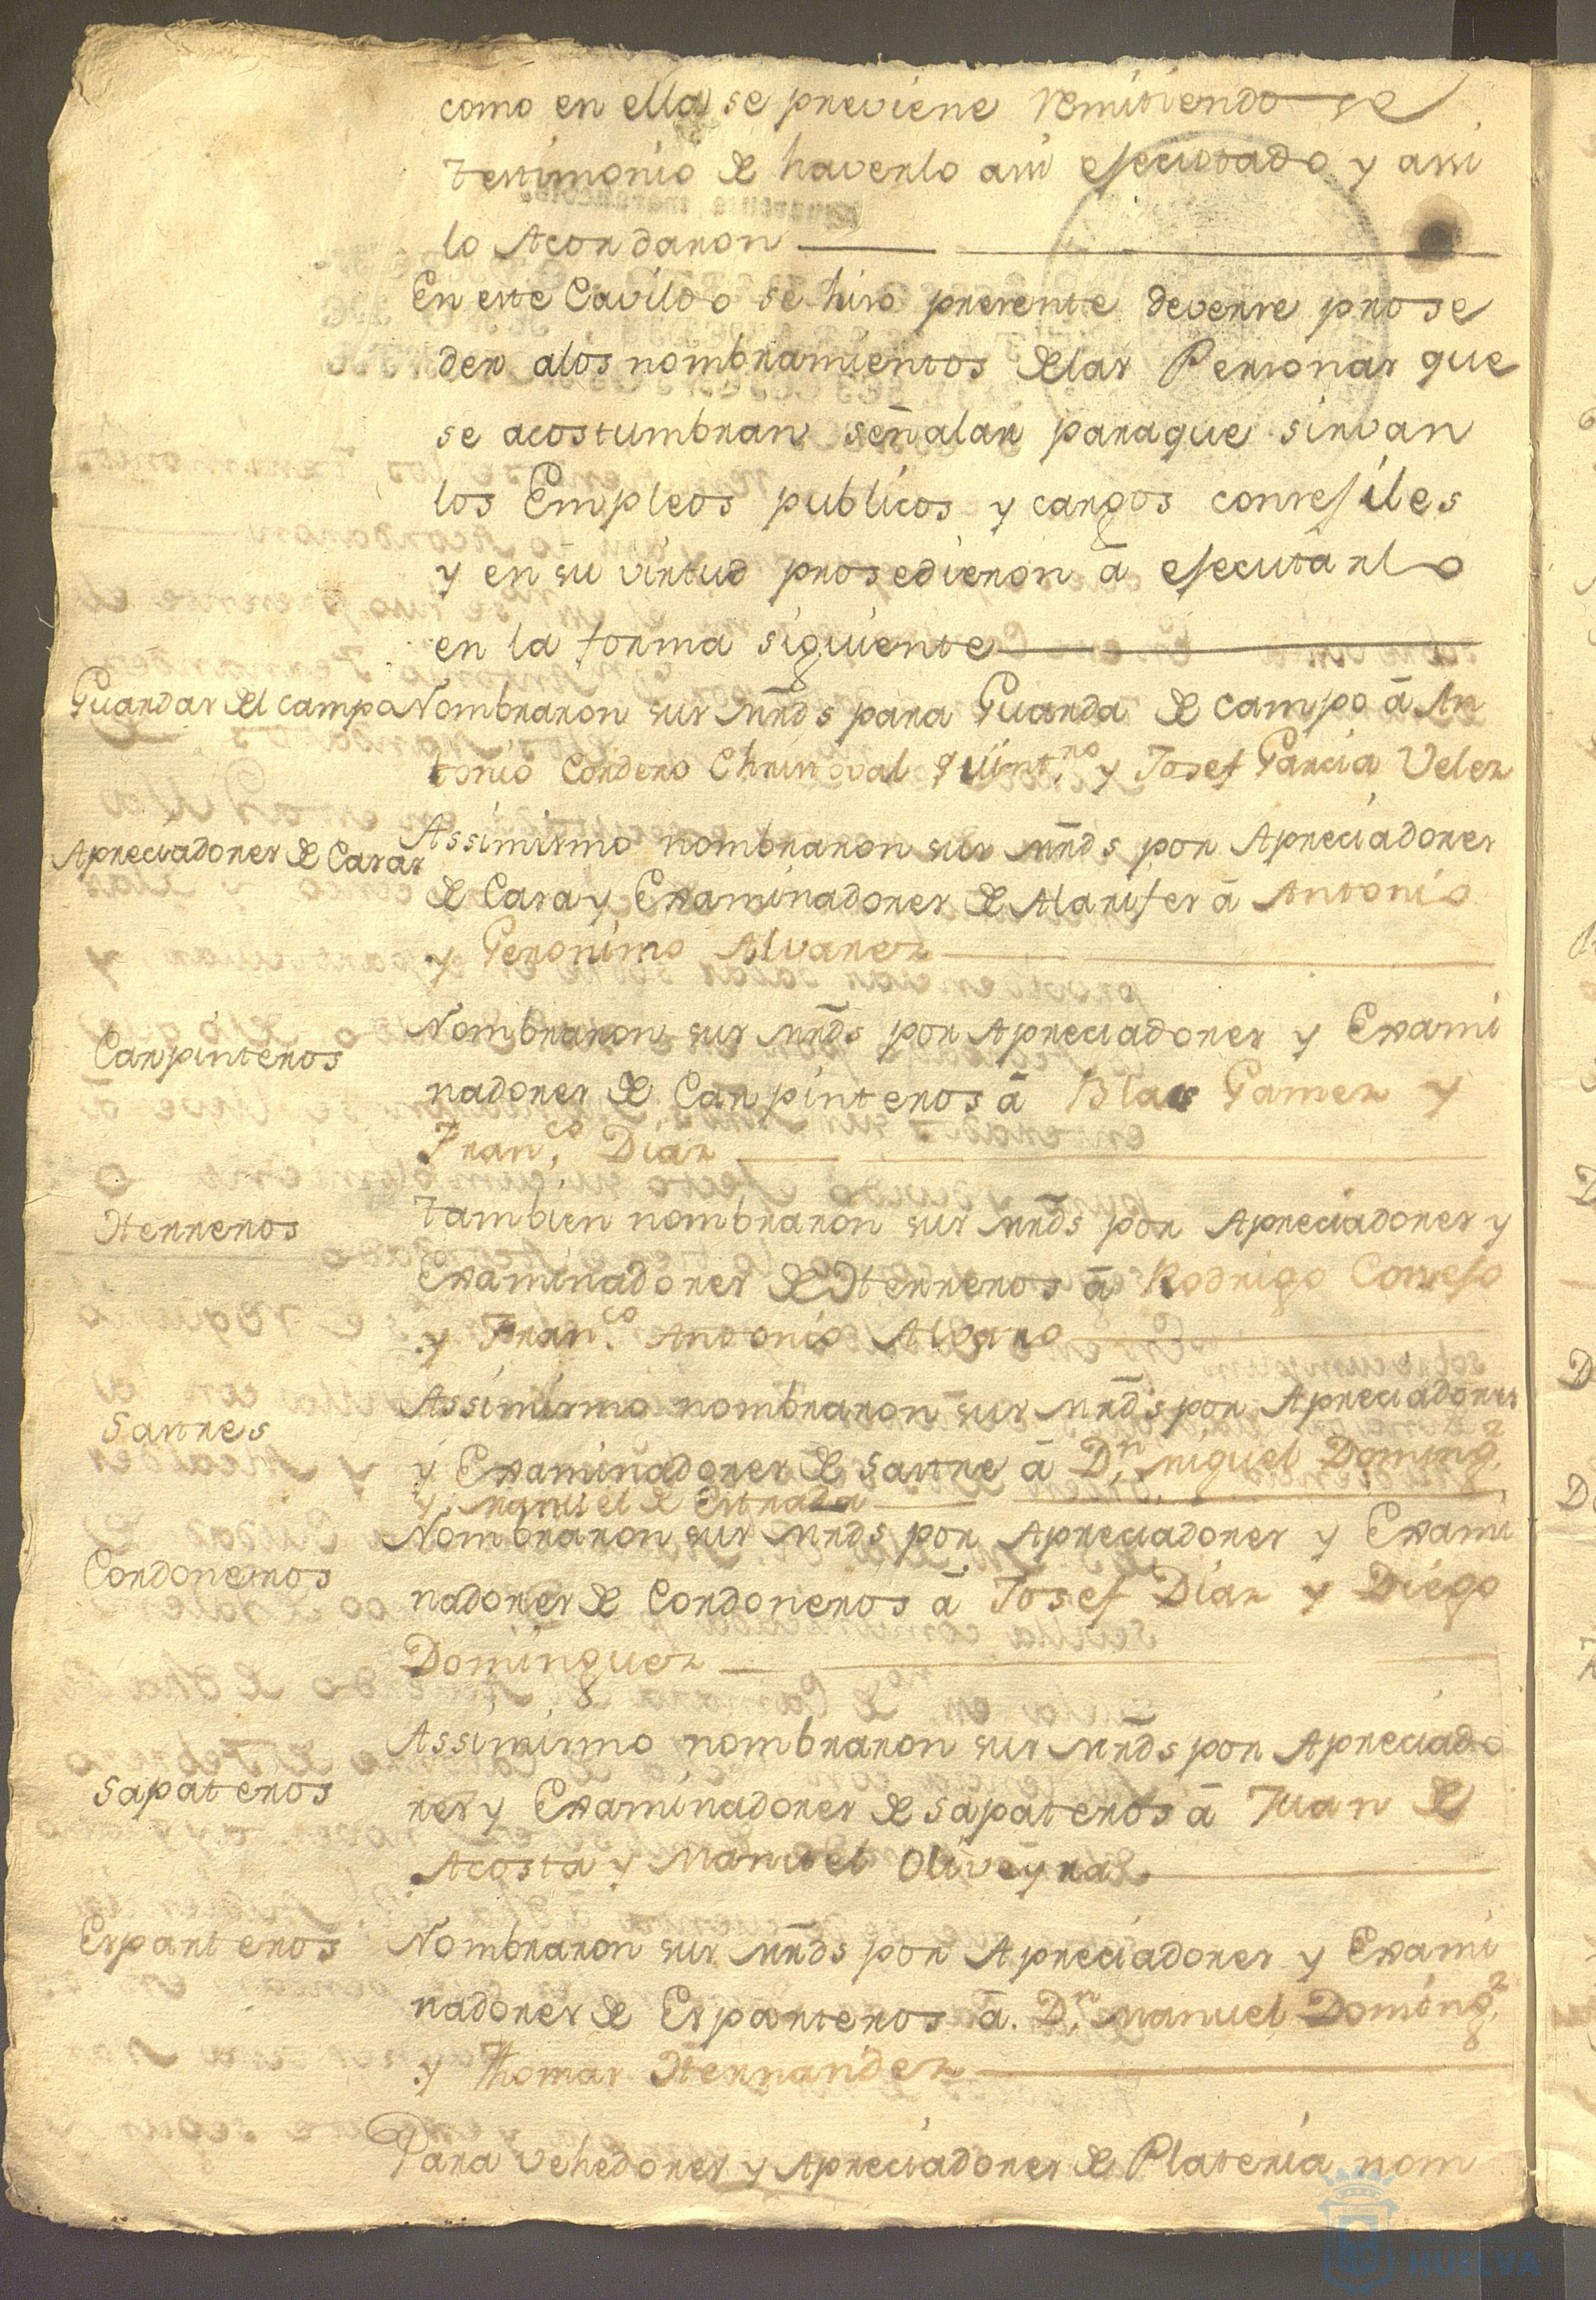 como en ella se previene remitiendo se
testimonio de haverlo assi ejecutado y assi
lo Acordaron
En este Cavildo se hiso presente deverse prose
der alos nombramientos delas Personas que
se acostumbran señalar paraque sirvan
los Empleos publicos y cargos consejiles
y en su virtud prosedieron â ejecutarlo
en la forma siguiente
Guardas del campo Nombraron sus mrds para Guarda de campo â An
tonio Cordero Christoval quint.ro y Josef Garcia Velez
Apreciadores de Casas Assimismo nombraron sus mrds por Apreciadores
de Casa y Examinadores de Alarifes â Antonio
y Geronimo Alvarez
Carpinteros Nombraron sus mrds por Apreciadores y Exami
nadores de Carpinteros â Blas Gamez y
Fran.co Diaz
Herreros Tambien nombraron sus mrds por Apreciadores y
Examinadores de Herreros â Rodrigo Consejo
y Fran.co Antonio Alvaro
Sastres Assimismo nombraron sus mrds por Apreciadores
y Examinadores de Sastre â D.n Miguel Doming.z
y Manuel de Estrada
Cordoneros Nombraron sus mrds por Apreciadores y Exami
nadores de Cordoneros â Josef Diaz y Diego
Dominguez
Sapateros Assimismo nombraron sus mrds por Apreciado
res y Examinadores de Sapateros â Juan de
Acosta y Manuel Oliveyra
Esparteros Nombraron sus mrds por Apreciadores y Exami
nadores de Esparteros â D.n Manuel Doming.z
y Thomas Hernandez
Para Vehedores y Apreciadores de Plateria nom
HUELVA